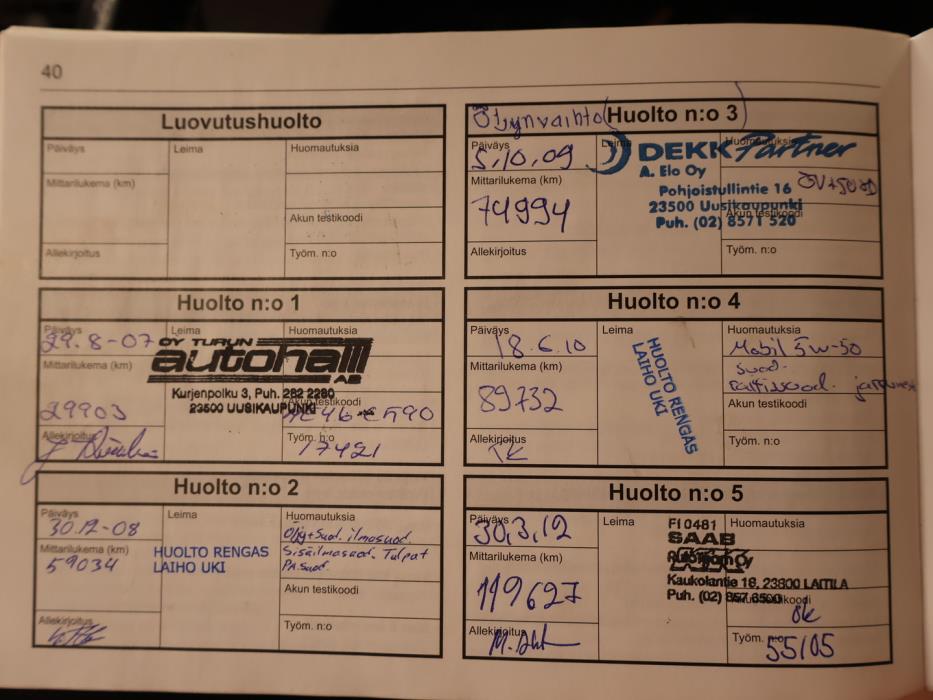 40
Luovutushuolto
Päiväys
Leima
Huomautuksia
Mittarilukema (km)
Akun testikoodi
Allekirjoitus
Työm. n:o
Huolto n:o 1
Päiväys
Leima
Huomautuksia
29.8-07
OY TURUN
autohalli
AB
Mittarilukema (km)
Kurjenpolku 3, Puh. 282 2280
23500 UUSIKAUPUNKI
Akun testikoodi
29903
590
Allekirjoitus
Työm. n:o
17421
Huolto n:o 2
Päiväys
Leima
Huomautuksia
30.12-08
Öljy+suod. ilmasuod.
Mittarilukema (km)
HUOLTO RENGAS
LAIHO UKI
Sisäilmasuod. Tulpat
59034
PA.suod.
Akun testikoodi
Allekirjoitus
Työm. n:o
Öljynvaihto (Huolto n:o 3)
Päiväys
Leima
Huomautuksia
5.10.09
DEKK Partner
A. Elo Oy
Mittarilukema (km)
Pohjoistullintie 16
23500 Uusikaupunki
74994
Akun testikoodi
Puh. (02) 8571 520
Allekirjoitus
Työm. n:o
Huolto n:o 4
Päiväys
Leima
Huomautuksia
18.6.10
Mobil 5w-50
Mittarilukema (km)
HUOLTO RENGAS
LAIHO UKI
suod.
89732
Akun testikoodi
Allekirjoitus
Työm. n:o
Huolto n:o 5
Päiväys
Leima
FI 0481
Huomautuksia
30.3.12
SAAB
Mittarilukema (km)
Kaukolantie 18, 23800 LAITILA
119627
Puh. (02) 857 6500
Akun testikoodi
ok
Allekirjoitus
Työm. n:o
55105